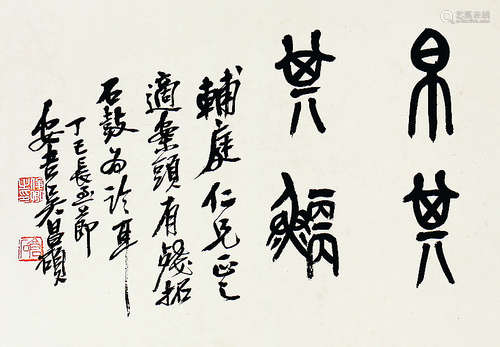 帛其
其鯾
輔庭仁兄正之
適案頭有殘拓
石鼓為臨耳
丁巳長至節
安吉吳昌碩